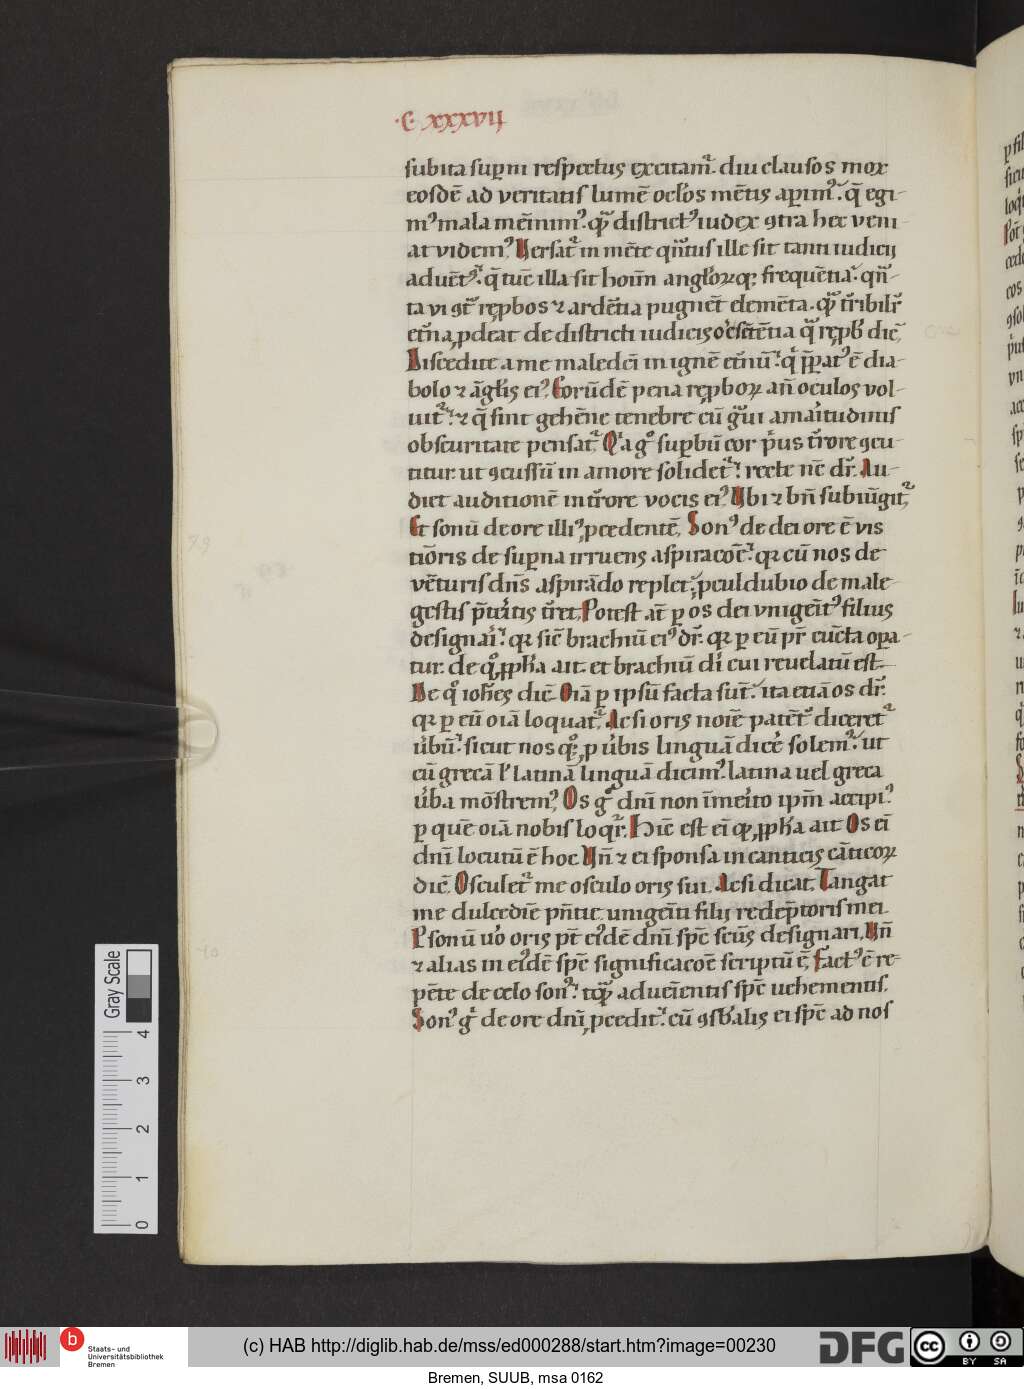 ·C xxxvij
subita suꝑni respectus excitam̃. diu clausos mox
eosdē ad veritatis lumē ocl̓os mētis aꝑimꝰ. q̄ egi-
mꝰ mala mēinimꝰ. qͣ districtꝰ iudex ꝯtra hec veni-
at videmꝰ Versat̃ in mēte qn̄tus ille sit tanti iudicij
aduētꝰ. q̄ tūc illa sit hoim̄ angl̓oꝝqꝫ frequētia. qn̄-
ta vi ꝯt̃ rep̱bos ⁊ ardētia pugnēt elemēta. qͣ t̃ribilr̃
et̃na ꝓdeat de districti iudicis ore sētētia qͣ rep̱b̓ dic̄,
Discedite a me maledc̄i in ignē et̃nū. qͥ p̄patꝰ ē dia-
bolo ⁊ āgl̓is eiꝰ. Eorūdē pena rep̱boꝝ an̄ oculos vol-
uit̃. ⁊ q̄ sint gehēne tenebre cū gͣui amaritudinis
obscuritate pensat̃. Qͥa gͦ suꝑbū cor pͥus t̃rore ꝯcu-
titur. ut ꝯcussū in amore solidet̃. recte nc̄ dr̃. Au-
diet auditionē in t̃rore vocis eiꝰ Ubi ⁊ bn̄ subiūgit̃,
Et sonū de ore illiꝰ ꝓcedentē, Sonꝰ de dei ore ē vis
tio̅ris de suꝑna irruens aspiracōe. qꝛ cū nos de
vēturis dn̄s aspirādo replet. ꝓculdubio de male
gestis p̄tͥitis t̃ret, Potest at̄ ꝑ os dei vnigeītꝰ filius
designari. qꝛ sic̄ brachiū eiꝰ dr̃. qꝛ ꝑ eū pr̃ cūcta oꝑa-
tur. de qͦ ꝓph̓a ait. et brachiū dn̄i cui reuelatū est.
De qͦ ioh̓es dic̄. Oīa ꝑ ipsū facta sūt. ita etiā os dr̃.
qꝛ ꝑ eū oīa loquat̃, Ac si oris noīe patēt̓ diceret̃
v̓bū. sicut nos qͦqꝫ ꝓ v̓bis linguā dicē solemꝰ. ut
cū grecā l̓ latinā linguā dicimꝰ. latina uel greca
v̓ba mōstremꝰ, Os gͦ dn̄i non īmeīto ip̄m accipiꝰ
ꝑ quē oīa nobis loqͥr̃. Hīc est ei̅ qͦ ꝓph̓a ait Os ei̅
dn̄i locutū ē hoc Hn̄ ⁊ ei sponsa in canticis cāticoꝝ
dic̄. Osculet̃ me osculo oris sui. Ac si dicat. Tangat
me dulcedīe pn̄tie vnigēiti filij redēptoris mei.
P sonū v̓o oris pt̄ eꝰdē dn̄i spc̄ scūs designari, Un̄
⁊ alias in eꝰdē spc̄ significacōe scriptū ē, Factꝰ ē re-
pēte de celo sonꝰ. tqͣ aduēientis spc̄ vehementis,
Sonꝰ gͦ de ore dn̄i ꝓcedit. cū ꝯsb̓alis ei spc̄ ad nos
Gray Scale
4
3
2
1
0
b
Staats- und
Universitätsbibliothek
Bremen
(c) HAB http://diglib.hab.de/mss/ed000288/start.htm?image=00230
DFG
cc
BY SA
Bremen, SUUB, msa 0162